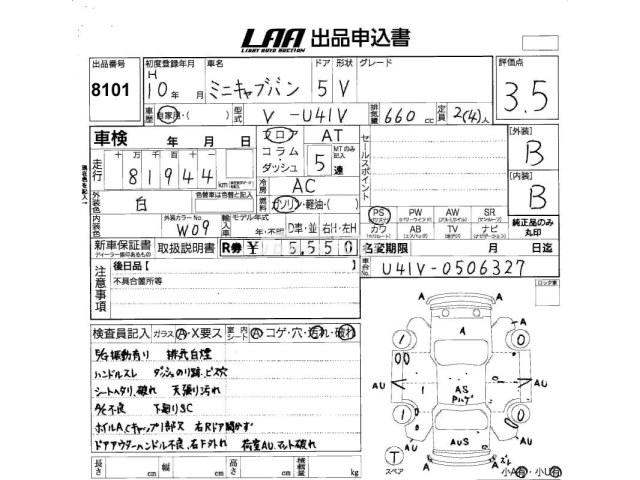 LAA 出品申込書
LIGHT AUTO AUCTION
出品番号 初度登録年月 車名 ドア 形状 グレード 評価点
8101 H 10年 月 ミニキャブバン 5 V 3.5
車歴 自家用・( ) 型式 V-U41V 排気量 660 cc 定員 2(4)人
車検 年 月 日 フロア AT セールスポイント [外装]
コラム 5 MTのみ記入 B
走行 十万千百十 81944 km ダッシュ 速
[内装]
冷房 AC B
外装色 白 色替車は色替と記入 燃料 ガソリン・軽油・( )
PS PW AW SR 純正品のみ
カワ AB TV ナビ 丸印
内装色 外装カラーNo W09 輸入車 モデル年式 年・不明 D車・並 右H・左H
新車保証書 取扱説明書 R券 ¥ 5,550 名変期限 月 日迄
ディーラー印のあるもの
車台No U41V-0506327
注意事項 後日品【 】
不具合箇所等
検査員記入 ガラス A・X要ス 室内 シート内 A コゲ・穴・汚れ・破れ
E/G振動有り 排気白煙
ハンドルスレ ダッシュのり跡、ビス穴
シートヘタリ、破れ 天張り汚れ
A/C不良 下廻りSC
ホイルA,Cキャップ1部ヌ 右Rドア開かず
ドアアウターハンドル不良、右F外れ 荷室AU、マット破れ
長さ cm 幅 cm 高さ cm 積載量 kg
A
1 0
A A
AU AU AS AU
1 0
AU AUS
T スペア A A
小A有・小U有